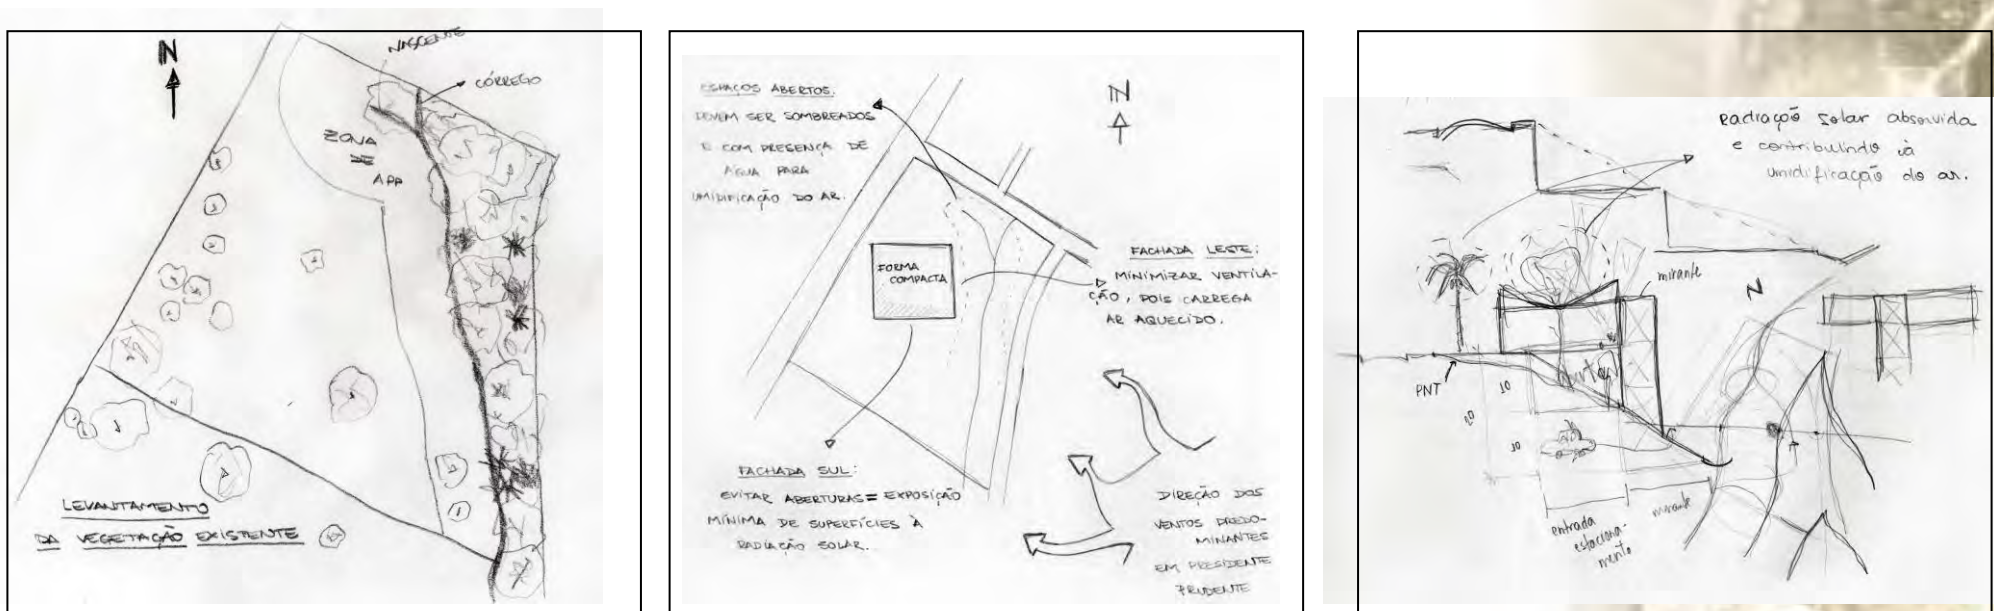 N
NASCENTE
CÓRREGO
ZONA
DE
APP
LEVANTAMENTO
DA VEGETAÇÃO EXISTENTE
ESPAÇOS ABERTOS:
DEVEM SER SOMBREADOS
E COM PRESENÇA DE
ÁGUA PARA
UMIDIFICAÇÃO DO AR.
N
FORMA
COMPACTA
FACHADA LESTE:
MINIMIZAR VENTILA-
ÇÃO, POIS CARREGA
AR AQUECIDO.
FACHADA SUL:
EVITAR ABERTURAS = EXPOSIÇÃO
MÍNIMA DE SUPERFÍCIES À
RADIAÇÃO SOLAR.
DIREÇÃO DOS
VENTOS PREDO-
MINANTES
EM PRESIDENTE
PRUDENTE
Radiação solar absorvida
e contribuindo à
umidificação do ar.
mirante
N
PNT
10
20
10
entrada
estaciona-
mento
mirante